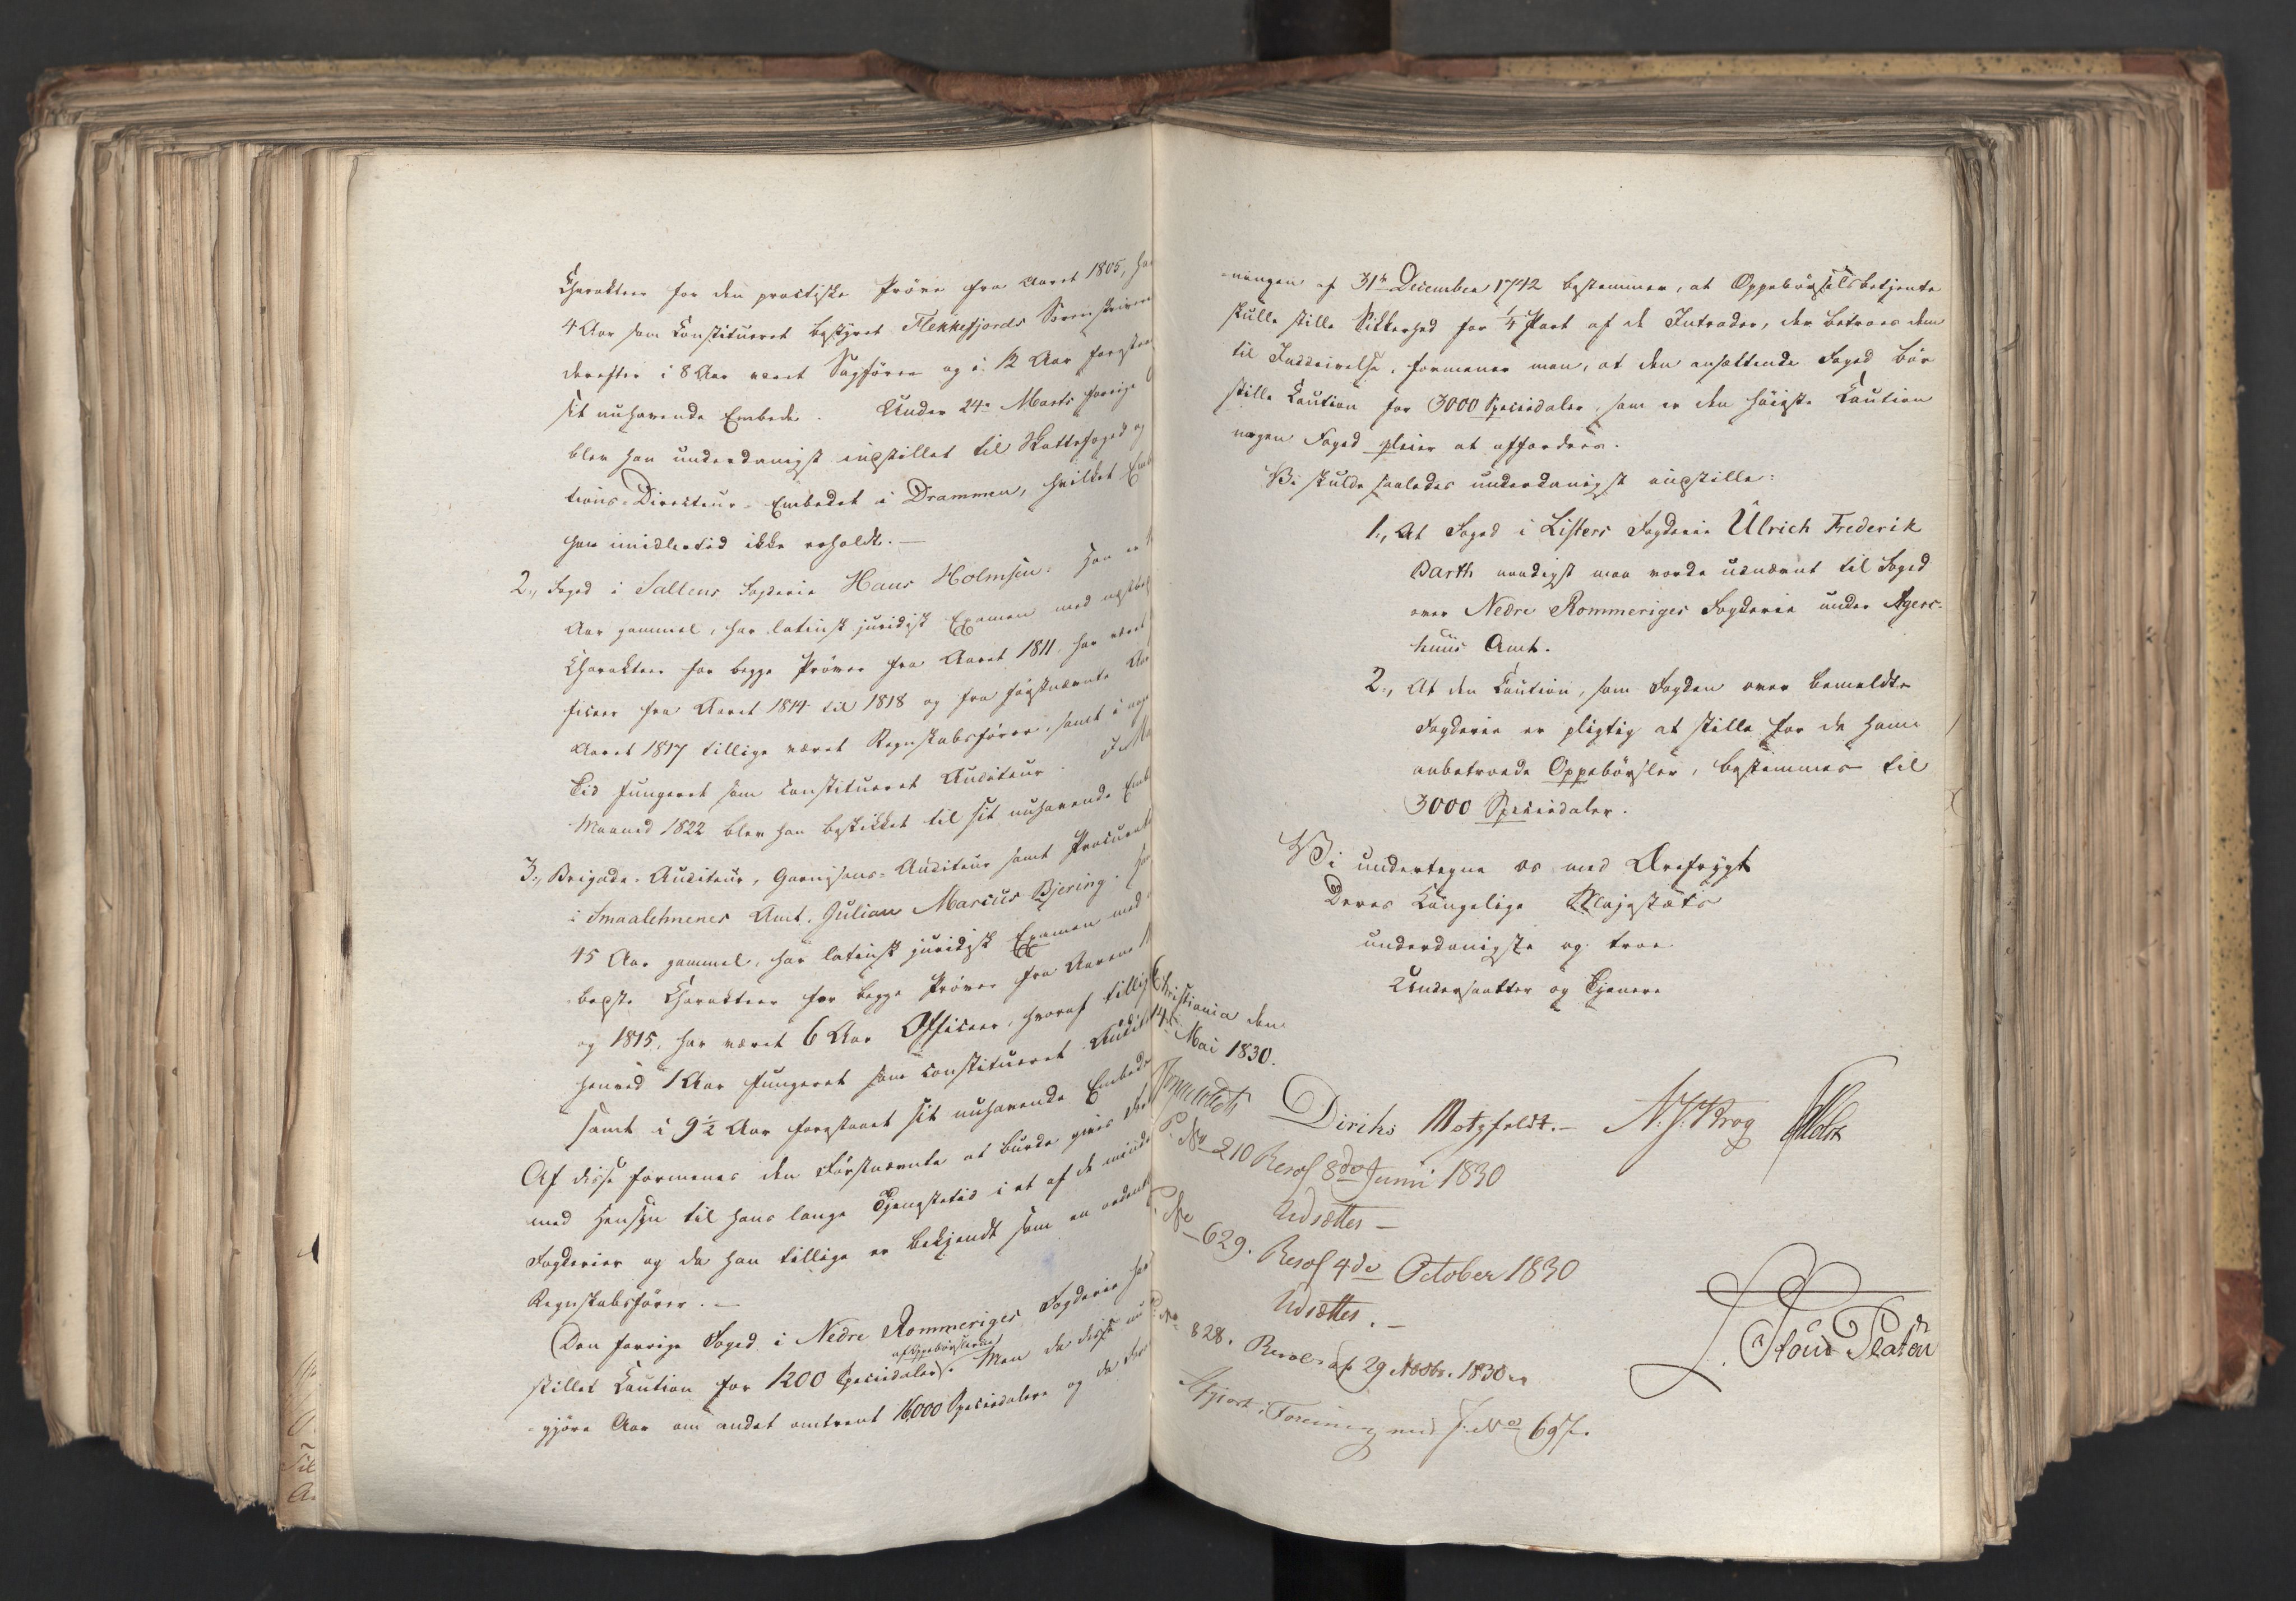 Charakteer for den practiske Prøve fra Aaret 1805, har
4 Aar som Constitueret bestyret Flekkefjords Sorenskriver
derefter i 8 Aar været Sagfører og i 12 Aar forestaaet
sit nuhavende Embede. Under 24de Marts forrige
blev han underdanigst indstillet til Skattefoged og
tions-Directeur-Embedet i Drammen, hvilket Emb
han imidlertid ikke erholdt.—
2., Foged i Saltens Fogderie Hans Holmsen. Han er
Aar gammel, har latinsk juridisk Examen med
Charakteer for begge Prøver fra Aaret 1811, har været
ficeer fra Aaret 1814 til 1818 og fra sidstnævnte Aar
Aaret 1817 tillige været Regnskabsfører, samt i
Tid fungeret som constitueret Auditeur. I Ma
Maaned 1822 blev han beskikket til sit nuhavende Emb
3., Brigade-Auditeur, Garnisons-Auditeur samt Procurat
i Smaalehnenes Amt, Julian Marius Bjering. Han
45 Aar gammel, har latinsk juridisk Examen med
bedste Charakteer for begge Prøver fra Aarene
og 1815, har været 6 Aar Officeer, hvoraf tillige
henved 1 Aar fungeret som constitueret Audit
samt i 9½ Aar forestaaet sit nuhavende Embede
Af disse formenes den Førstnævnte at burde gives
med Hensyn til hans lange Tjenestetid i et af de mindre
Fogderier og da han tillige er bekjendt som en
Regnskabsfører.—
Den forrige Foged i Nedre Rommeriges Fogderie har
af Oppebørslerne
stillet Caution for 1200 Speciedaler. Men da disse
gjøre Aar om andet omtrent 16,000 Speciedaler og da
ningen af 31te December 1742 bestemmer, at Oppebørselsbetjente
skulle stille Sikkerhed for ¼ Part af de Intrader, der betroes dem
til Inddrivelse, formener man, at den ansættende Foged bør
stille Caution for 3000 Speciedaler, som er den høieste Caution
nogen Foged pleier at affordres.
Vi skulde saaledes underdanigst indstille:
1., At Foged i Listers Fogderie Ulrich Frederik
Barth naadigst maa vorde udnævnt til Foged
over Nedre Rommeriges Fogderie under Agers-
huus Amt.
2., At den Caution, som Fogden over bemeldte
Fogderie er pligtig at stille for de ham
anbetroede Oppebørsler, bestemmes til
3000 Speciedaler.
Vi undertegne os med Ærefrygt
Deres Kongelige Majestæts
underdanigste og troe
Undersaatter og Tjenere
Christiania den
14de Mai 1830.
Diriks Motzfeldt.— N. J. Krog Holst
P. No 210 Resol 8de Junii 1830
Udsættes—
P. No 629. Resol 4de October 1830
Udsættes.—
P. No 828. Resol. af 29 Novbr. 1830
Afgjort i Forening med J. No 697.
Platen